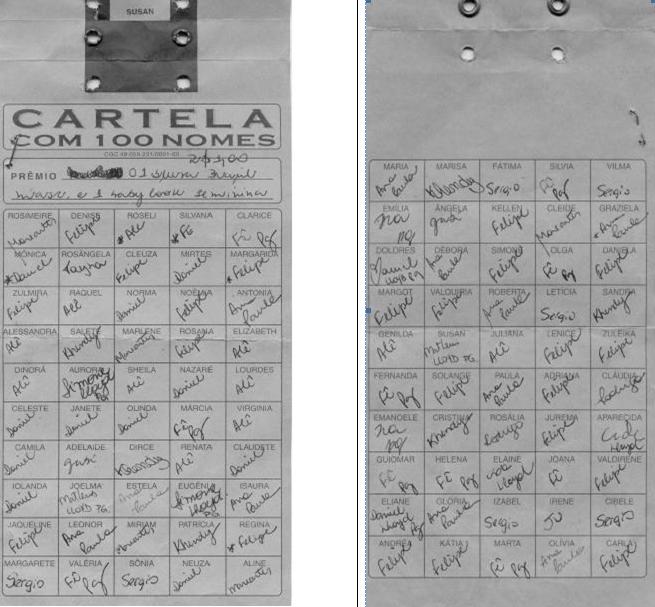 SUSAN
CARTELA
COM 100 NOMES
PRÊMIO 01
ROSIMEIRE DENISE ROSELI SILVANA CLARICE
Felipe *Alê *Fê Fê Pg
MÔNICA ROSÂNGELA CLEUZA MIRTES MARGARIDA
*Daniel Felipe Daniel *Felipe
ZULMIRA RAQUEL NORMA NOÊMIA ANTONIA
Felipe Alê Daniel Felipe Ana Paula
ALESSANDRA SALETE MARLENE ROSANA ELIZABETH
Alê Khendy Felipe Alê
DINORÁ AURORA SHEILA NAZARÉ LOURDES
Alê Simone Lloyd Pg Alê Daniel Alê
CELESTE JANETE OLINDA MÁRCIA VIRGINIA
Daniel Daniel Daniel Fê Pg Alê
CAMILA ADELAIDE DIRCE RENATA CLAUDETE
Daniel Khendy Alê Daniel
IOLANDA JOELMA ESTELA EUGÊNIA ISAURA
Daniel Mateus LLOYD PG. Ana Paula Simone Lloyd Pg Ana Paula
JAQUELINE LEONOR MIRIAM PATRÍCIA REGINA
Felipe Ana Paula Khendy *Felipe
MARGARETE VALÉRIA SÔNIA NEUZA ALINE
Sergio Fê Pg Sergio Daniel
MARIA MARISA FÁTIMA SILVIA VILMA
Ana Paula Khendy Sergio Fê Pg Sergio
EMÍLIA ÂNGELA KELLEN CLEIDE GRAZIELA
Felipe Ana Paula
DOLORES DÉBORA SIMONE OLGA DANIELA
Daniel LLOYD PG Ana Paula Felipe Fê Pg Felipe
MARGOT VALQUIRIA ROBERTA LETÍCIA SANDRA
Felipe Felipe Ana Paula Sergio Khendy
GENILDA SUSAN JULIANA LENICE ZULEIKA
Alê Mateus LLOYD PG Alê Felipe Felipe
FERNANDA SOLANGE PAULA ADRIANA CLÁUDIA
Fê Pg Felipe Ana Paula Felipe Rodrigo
EMANOELE CRISTINA ROSÁLIA JUREMA APARECIDA
Khendy Rodrigo Felipe Cida Lloyd
GUIOMAR HELENA ELAINE JOANA VALDIRENE
Fê Pg Fê Pg Cida Lloyd Fê Felipe
ELIANE GLÓRIA IZABEL IRENE CIBELE
Daniel Lloyd Pg Ana Paula Sergio Ju Sergio
ANDRÉA KÁTIA MARTA OLÍVIA CARLA
Felipe Felipe Fê Pg Ana Paula Felipe